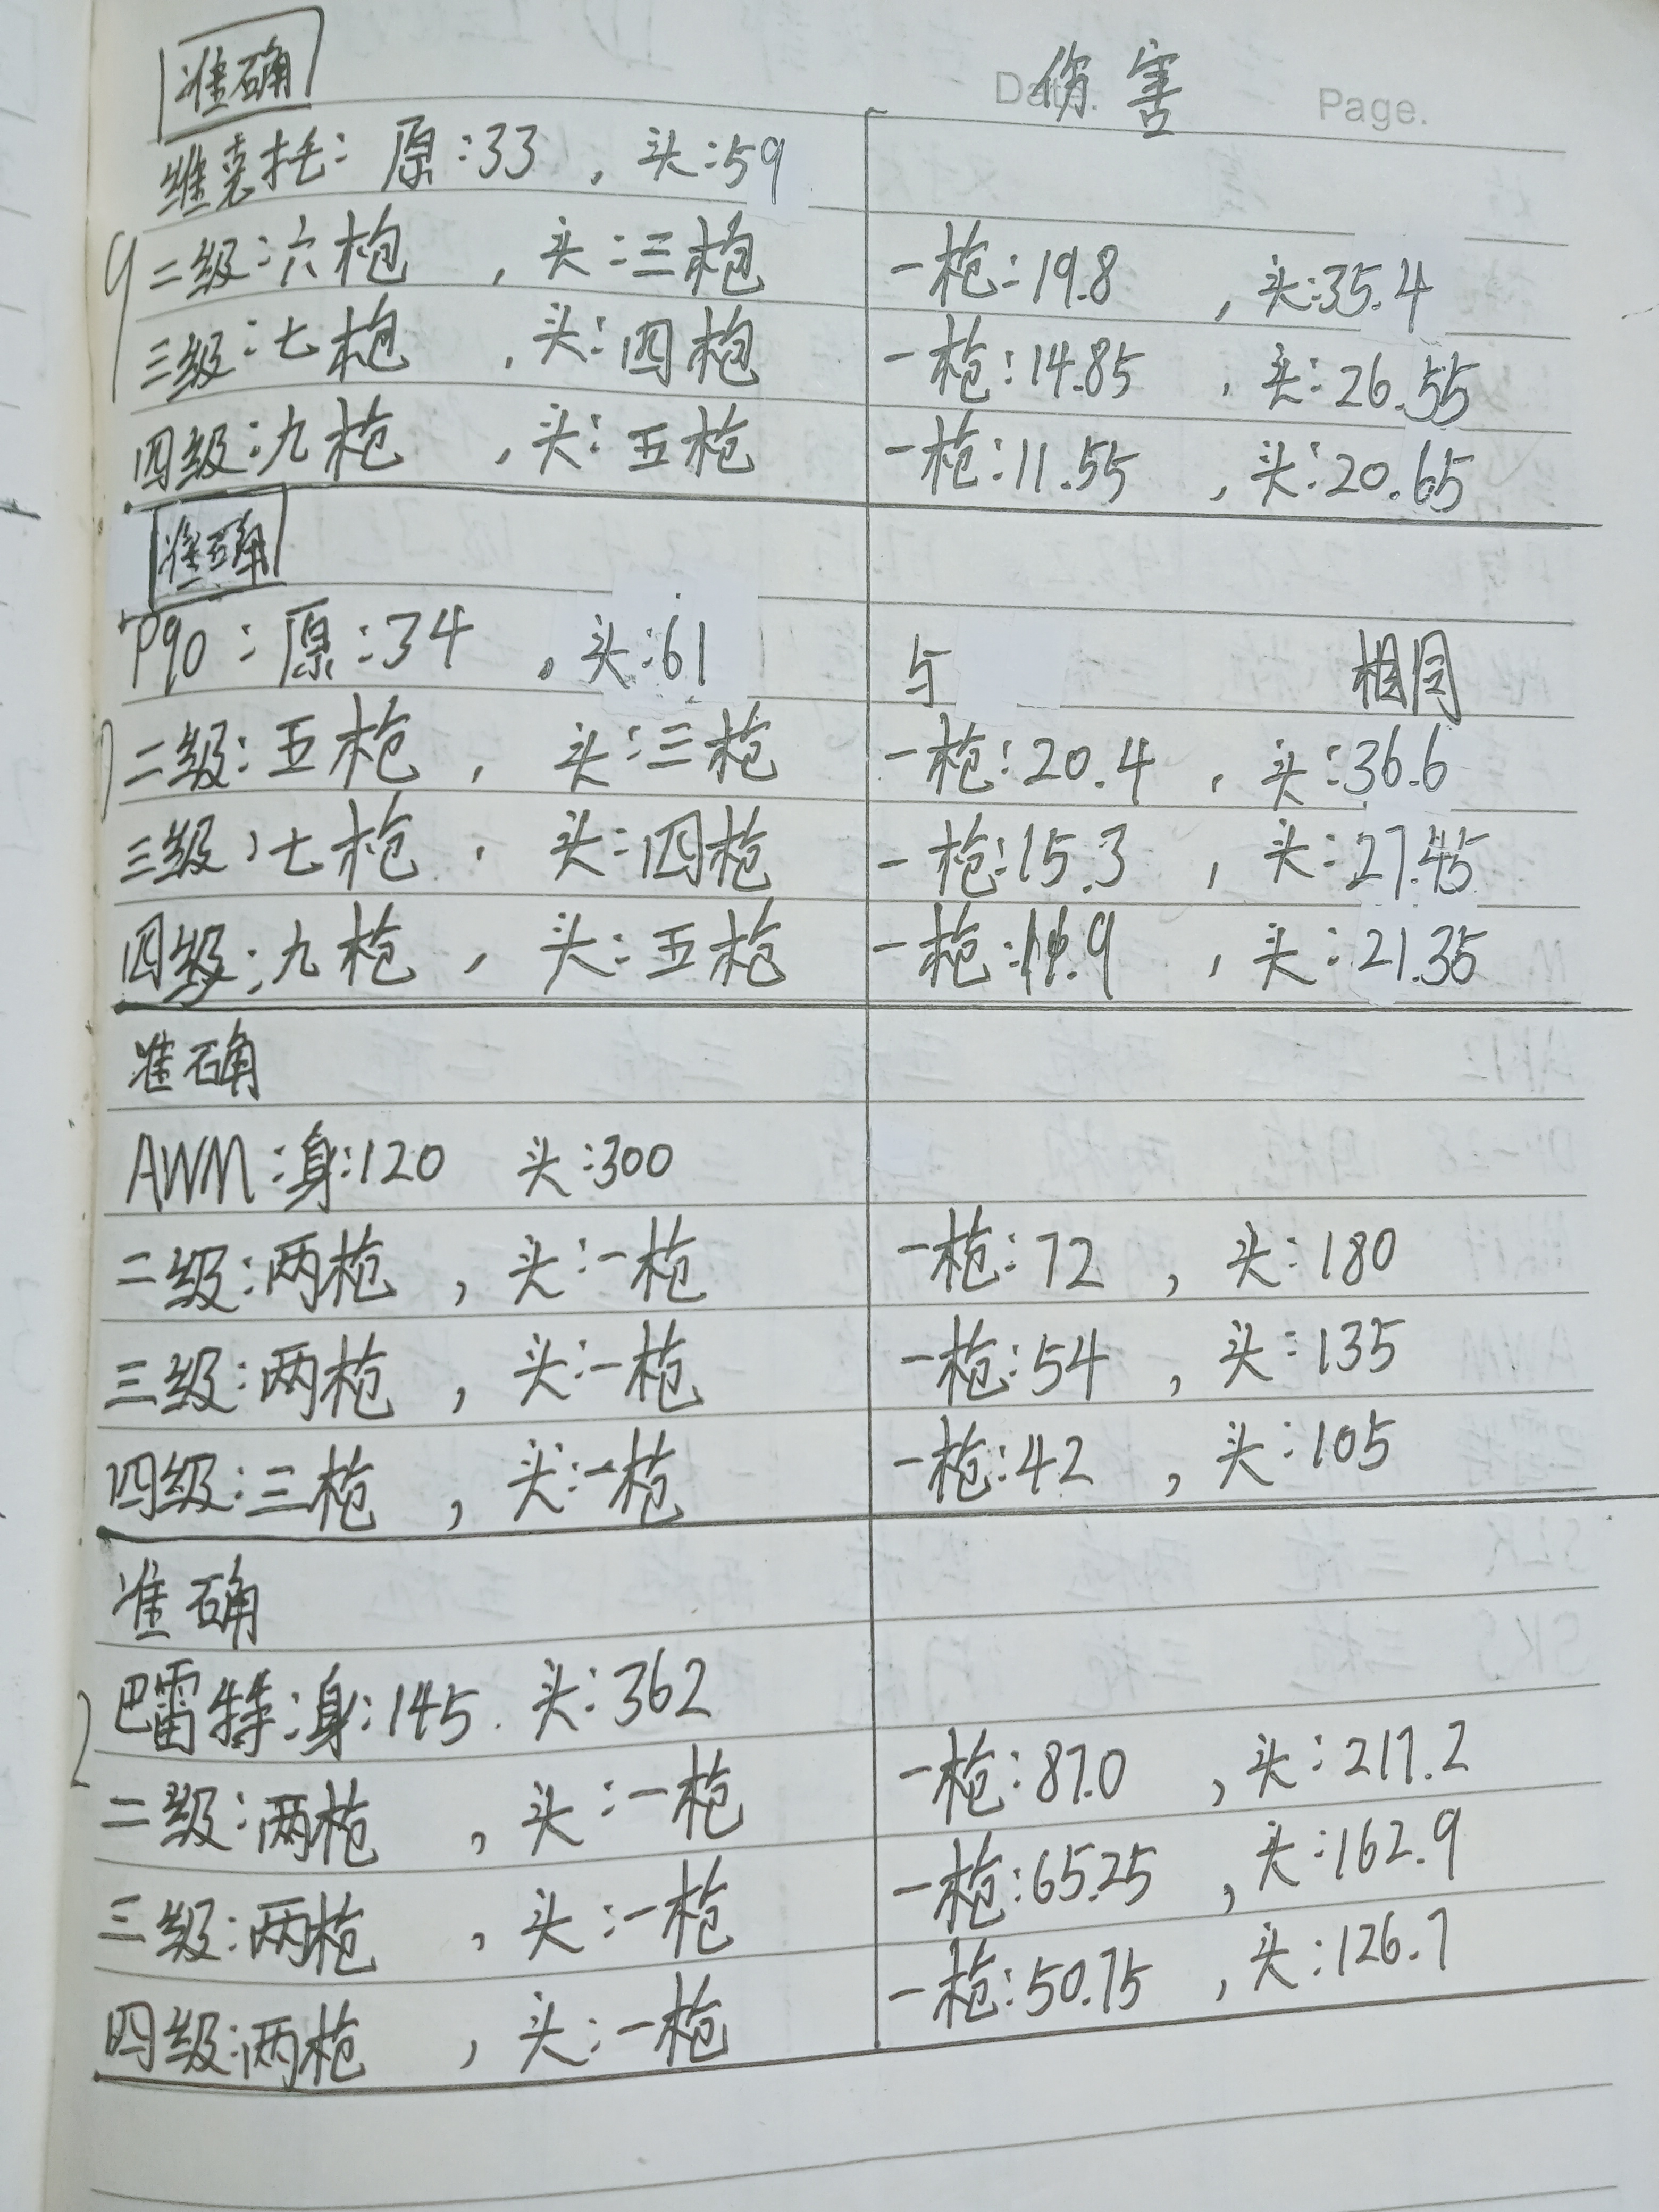 准确
Date. 伤害 Page.
维克托: 原:33 , 头:59
二级:六枪 , 头:三枪 一枪:19.8 , 头:35.4
三级:七枪 , 头:四枪 一枪:14.85 , 头:26.55
四级:九枪 , 头:五枪 一枪:11.55 , 头:20.65
准确
P90:原:34 , 头:61 与 相同
二级:五枪 , 头:三枪 一枪:20.4 , 头:36.6
三级:七枪 , 头:四枪 一枪:15.3 , 头:27.45
四级:九枪 , 头:五枪 一枪:11.9 , 头:21.35
准确
AWM:身:120 头:300
二级:两枪 , 头:一枪 一枪:72 , 头:180
三级:两枪 , 头:一枪 一枪:54 , 头:135
四级:三枪 , 头:一枪 一枪:42 , 头:105
准确
巴雷特:身:145. 头:362
二级:两枪 , 头:一枪 一枪:87.0 , 头:217.2
三级:两枪 , 头:一枪 一枪:65.25 , 头:162.9
四级:两枪 , 头:一枪 一枪:50.75 , 头:126.7